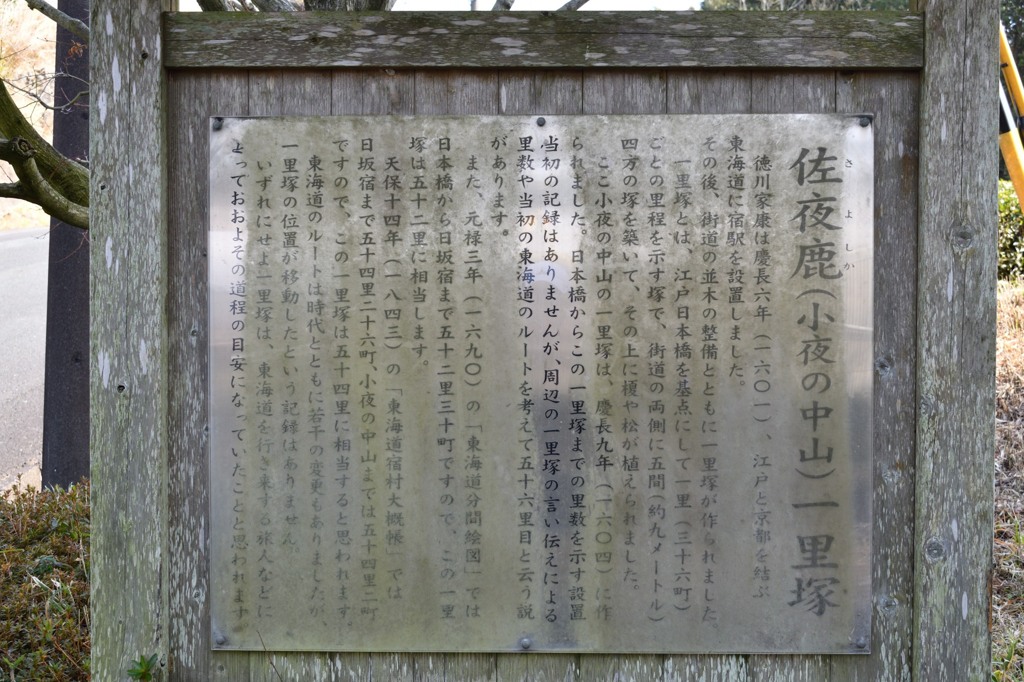 佐夜鹿(小夜の中山)一里塚
さよしか
徳川家康は慶長六年(一六〇一)、江戸と京都を結ぶ
東海道に宿駅を設置しました。
その後、街道の並木の整備とともに一里塚が作られました
一里塚とは、江戸日本橋を基点にして一里(三十六町)
ごとの里程を示す塚で、街道の両側に五間(約九メートル)
四方の塚を築いて、その上に榎や松が植えられました。
ここ小夜の中山の一里塚は、慶長九年(一六〇四)に作
られました。日本橋からこの一里塚までの里数を示す設置
当初の記録はありませんが、周辺の一里塚の言い伝えによる
里数や当初の東海道のルートを考えて五十六里目と云う説
があります。
また、元禄三年(一六九〇)の「東海道分間絵図」では
日本橋から日坂宿まで五十二里三十町ですので、この一里
塚は五十二里に相当します。
天保十四年(一八四三)の「東海道宿村大概帳」では
日坂宿まで五十四里二十六町、小夜の中山までは五十四里二町
ですので、この一里塚は五十四里に相当すると思われます。
東海道のルートは時代とともに若干の変更もありましたが、
一里塚の位置が移動したという記録はありません。
いずれにせよ一里塚は、東海道を行き来する旅人などに
とっておおよその道程の目安になっていたことと思われます。